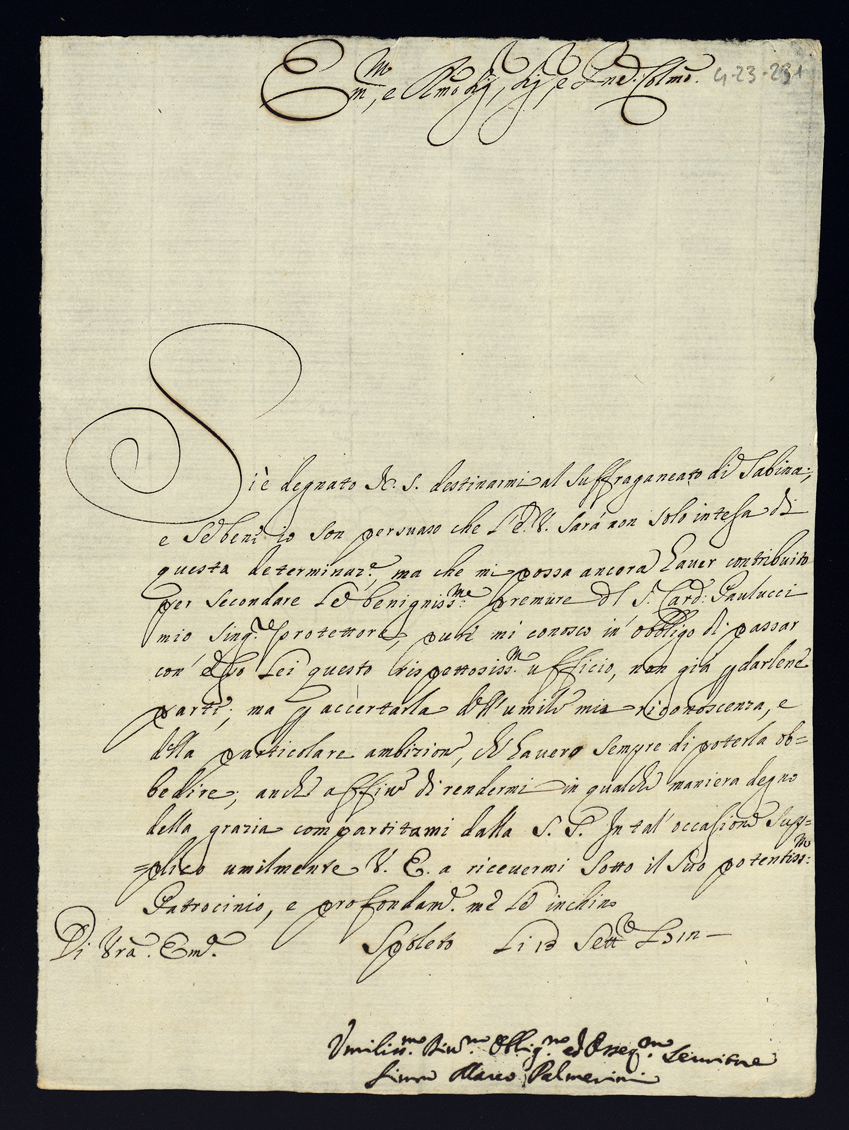 Em.mo, e Rmo Sig, Sig, e Pne. Colmo.
4-23-231
Si è degnato N. S. destinarmi al Suffraganeato di Sabina;
e se bene io son persuaso che l'E. V. sarà non solo intesa di
questa determinaz.e ma che mi possa ancora haver contribuito
per secondare le benigniss.me premure del S. Card: Paulucci
mio Sing.re protettore, pure mi conosco in obbligo di passar
con esso Lei questo rispettosiss.mo ufficio, non già p darlene
parte; ma p accertarla dell'umile mia riconoscenza, e
della particolare ambizione, che haverò sempre di poterla ob=
bedire, anche affine di rendermi in qualche maniera degno
della grazia compartitami dalla S. S. In tal' occasione Sup=
=plico umilmente V. E. a ricevermi sotto il suo potentiss.mo
Patrocinio, e profondam.e me le inchino
Di Vra. Em.e Spoleto Li 13 Sett.re
Umiliss.mo Div.mo Obblig.mo ed Osseq.mo Servitore
Marco Palmerini